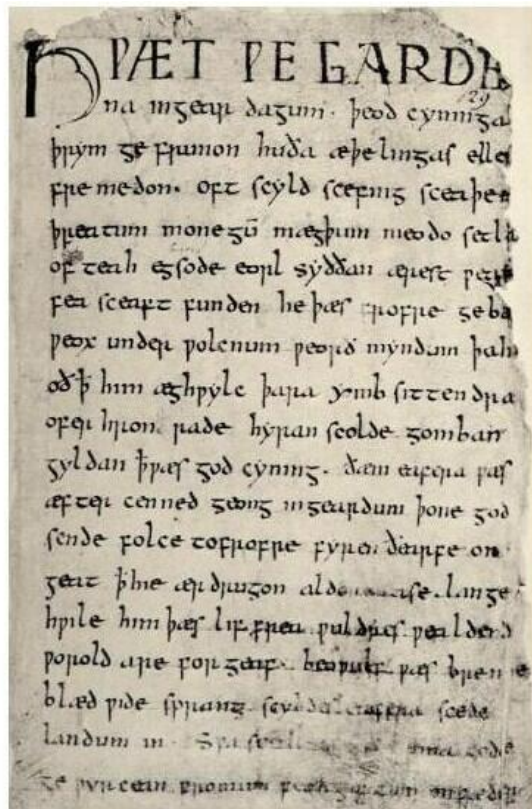 HǷÆT ǷE GARDE
129
na ingear dagum . þeod cyninga
þrym ge frunon huða æþelingas elle
fremedon . oft scyld scefing sceaþe
þreatum monegū mægþum meodo setla
of teah egsode eorl syððan ærest ƿear
fea sceaft funden he þæs frofre geba
ƿeox under ƿolcnum ƿeorð myndum þah
oð ꝥ him æghƿylc þara ymb sittendra
ofer hron rade hyran scolde gomban
gyldan ꝥ ƿæs god cyning . ðæm eafera ƿæs
æfter cenned geong ingeardum þone god
sende folce tofrofre fyren ðearfe on
geat ꝥ hie ær drugon lange
hƿile him þæs lif frea ƿuldres ƿealdend
ƿorold are for geaf . beoƿulf ƿæs breme
blæd ƿide sprang scyldes eafera scede
landum in . Sƿa guma gode
ge ƿyrcean fromum